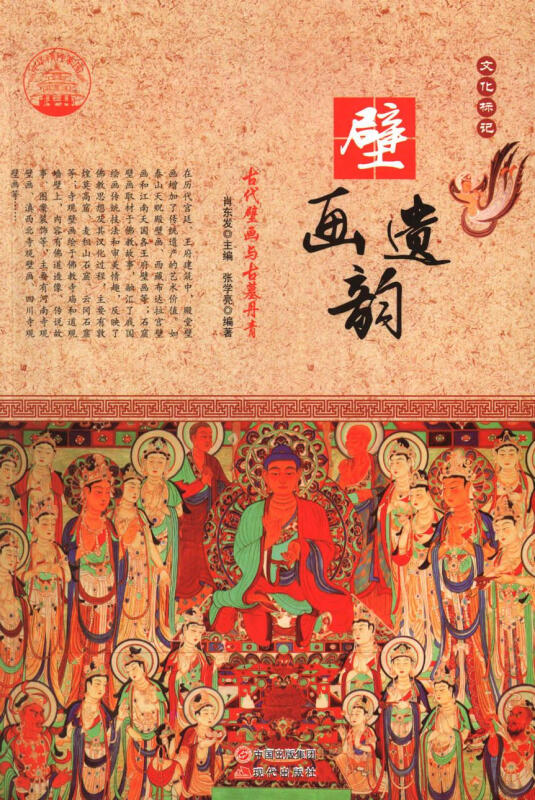 文化标记
壁画遗韵
古代壁画与古墓丹青
肖东发◎主编 张学亮◎编著
在历代宫廷、王府建筑中，殿堂壁
画增加了传统遗产的艺术价值，如
泰山天贶殿壁画、西藏布达拉宫壁
画和江南天国各王府壁画等；石窟
壁画取材于佛教故事，融汇了我国
绘画传统技法和审美情趣，反映了
佛教思想及其汉化过程，主要有敦
煌莫高窟、麦积山石窟、云冈石窟
等；寺观壁画绘于佛教寺庙和道观
墙壁上，内容有佛道造像、传说故
事、图案装饰等，主要有河南寺观
壁画、滇西北寺观壁画、四川寺观
壁画等……
中国出版集团
现代出版社